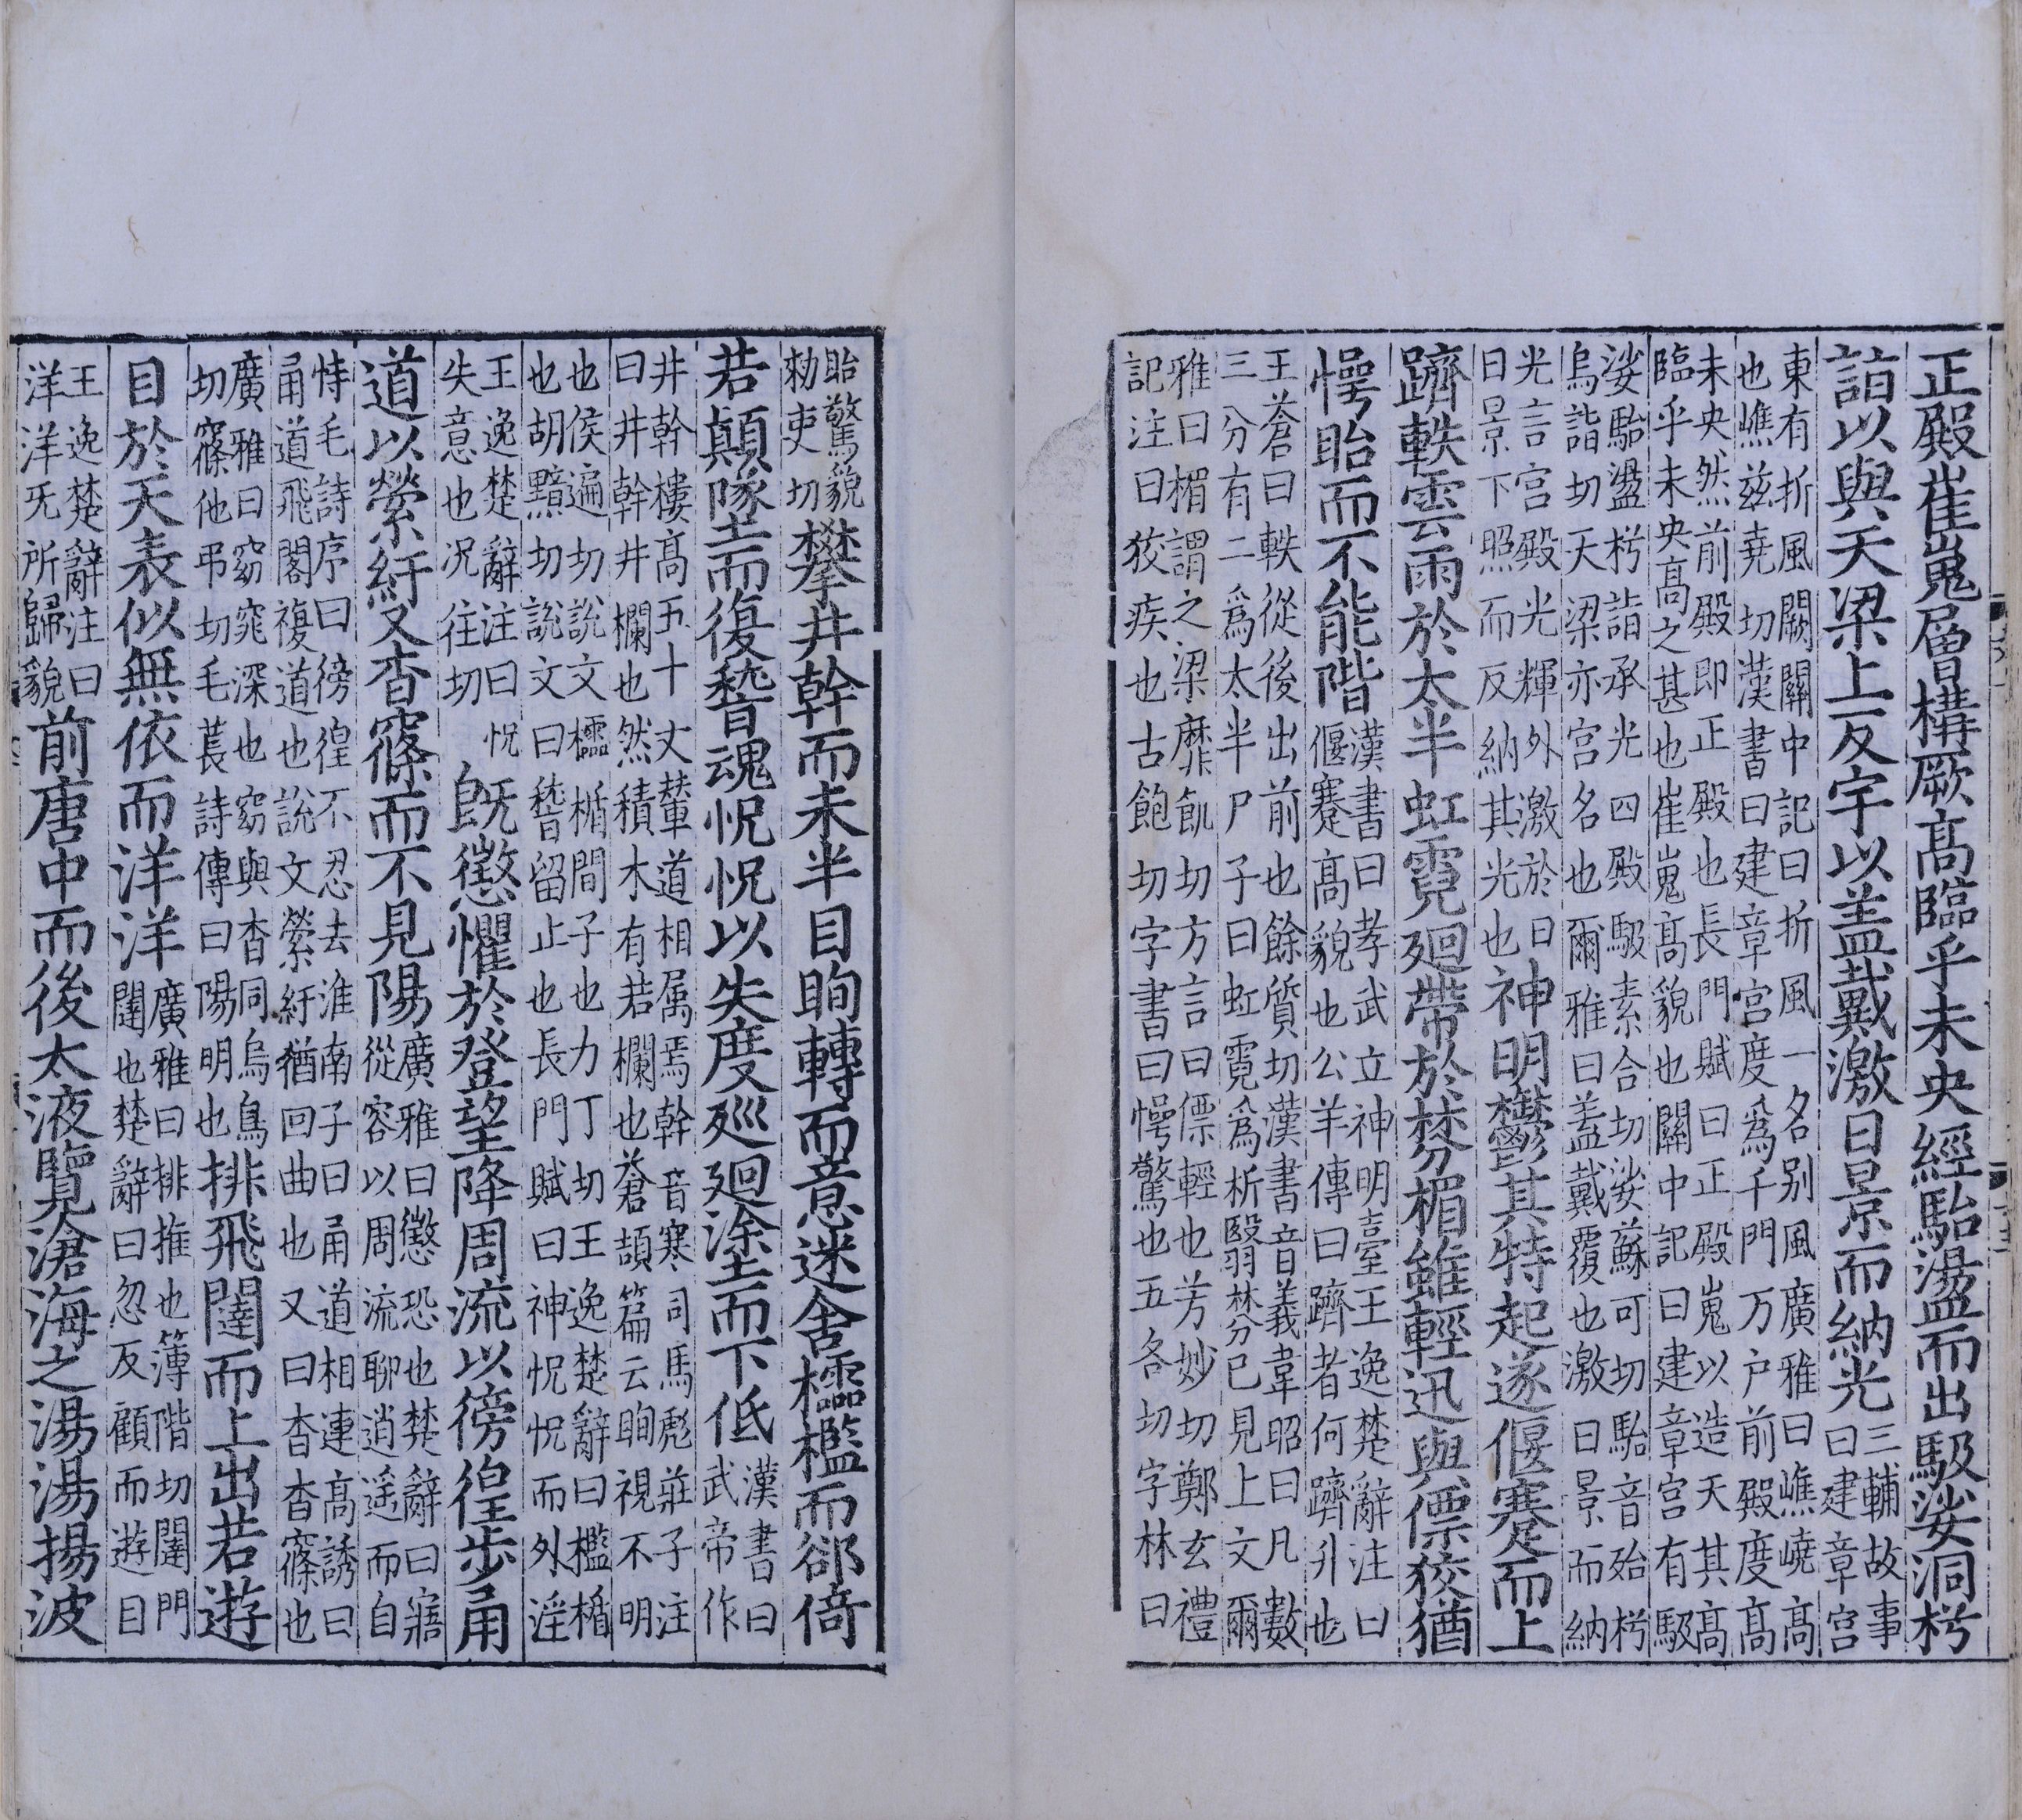 正殿崔嵬層構厥髙臨乎未央經駘盪而出馺娑洞枍
詣以與天梁上反宇以盖戴激日景而納光三輔故事曰建章宫
東有折風闕關中記曰折風一名别風廣雅曰嶕嶢髙
也嶕兹堯切漢書曰建章宫度爲千門万户前殿度髙
未央然前殿即正殿也長門賦曰正殿嵬以造天其髙
臨乎未央髙之甚也崔嵬髙貌也關中記曰建章宫有馺
娑駘盪枍詣承光四殿馺素合切娑蘇可切駘音殆枍
烏詣切天梁亦宫名也爾雅曰盖戴覆也激日景而納
光言宫殿光輝外激於日日景下照而反納其光也神明鬱其特起遂偃蹇而上
躋軼雲雨於太半虹霓廻帶於棼楣雖輕迅與僄狡猶
愕眙而不能階漢書曰孝武立神明臺王逸楚辭注曰偃蹇髙貌也公羊傳曰躋者何躋升也
王蒼曰軼從後出前也餘質切漢書音義韋昭曰凡數
三分有二爲太半尸子曰虹霓爲析翳棼已見上文爾
雅曰楣謂之梁靡飢切方言曰僄輕也芳妙切鄭玄禮
記注曰狡疾也古飽切字書曰愕驚也五各切字林曰
眙驚貌勑吏切攀井幹而未半目眴轉而意迷舍櫺檻而郤倚
若顛墜而復稽魂怳怳以失度廵廻塗而下低漢書曰武帝作
井幹樓髙五十丈輦道相属焉幹音寒司馬彪莊子注
曰井幹井欄也然積木有若欄也蒼頡篇云眴視不明
也侯遍切説文櫺楯間子也力丁切王逸楚辭曰檻楯
也胡黯切説文曰稽留止也長門賦曰神怳怳而外淫
王逸楚辭注曰怳失意也况往切既懲懼於登望降周流以徬徨步甬
道以縈紆又杳窱而不見陽廣雅曰懲恐也楚辭曰寤從容以周流聊逍遥而自
恃毛詩序曰徬徨不忍去淮南子曰甬道相連髙誘曰
甬道飛閣複道也説文縈紆猶回曲也又曰杳杳窱也
廣雅曰窈窕深也窈與杳同烏鳥
切窱他弔切毛萇詩傳曰陽明也排飛闥而上出若遊
目於天表似無依而洋洋廣雅曰排推也簿階切闥門闥也楚辭曰忽反顧而遊目
王逸楚辭注曰洋洋旡所歸貌前唐中而後太液覽滄海之湯湯揚波